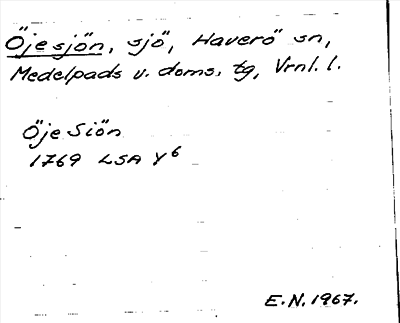 Öjesjön, sjö, Haverö sn,
Medelpads v. doms. tg, Vrnl. l.
Öje Siön
1769 LSA Y6
E.N. 1967.